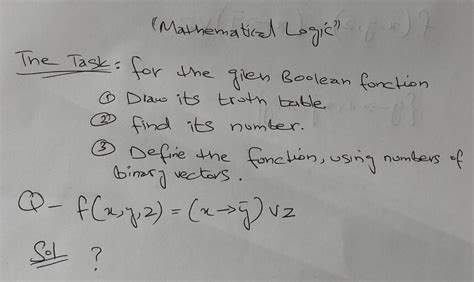 "Mathematical Logic"
The Task: for the given Boolean function
① Draw its truth table
② find its number.
③ Define the function, using numbers of
binary vectors.
Q - f(x,y,z) = (x → ȳ) ∨ z
Sol ?